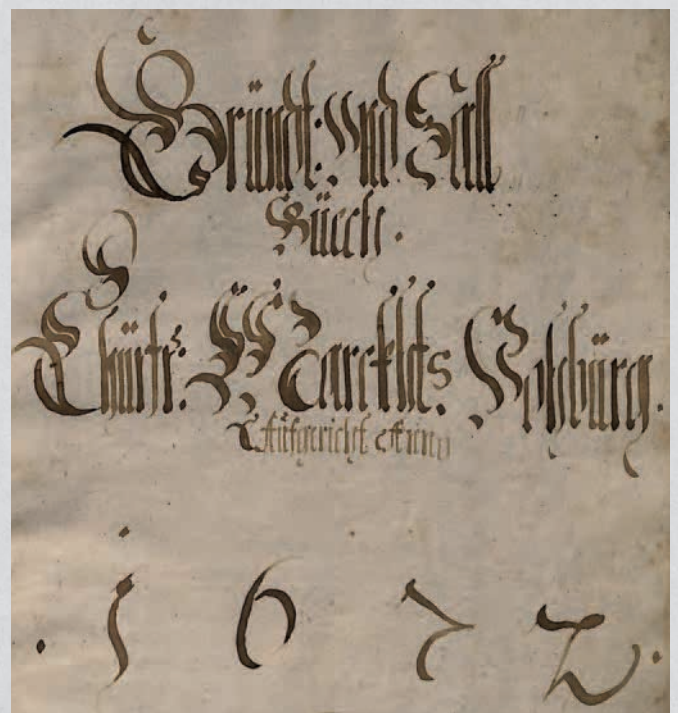 Gründt: vnd Sall
Büech.
Churfr: Marckhts Vohbürg.
Aufgericht Anno
. 1 6 7 2 .